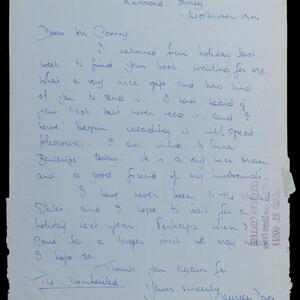 Richmond, Surrey
1 September 1964
Dear Mr Conroy,
I returned from holiday last
week to find your book waiting for me.
What a very nice gift and how kind
of you to send it. I had heard of
your book but never read it, and I
have begun reading it with great
pleasure. I am writing to
today. He is a very nice man
and a good friend of my husband's.
I have never been to the
States, and I hope to visit for a
holiday next year. Perhaps when I
come for a longer visit we may
I hope so.
Thank you again for
The Disinherited
Yours sincerely